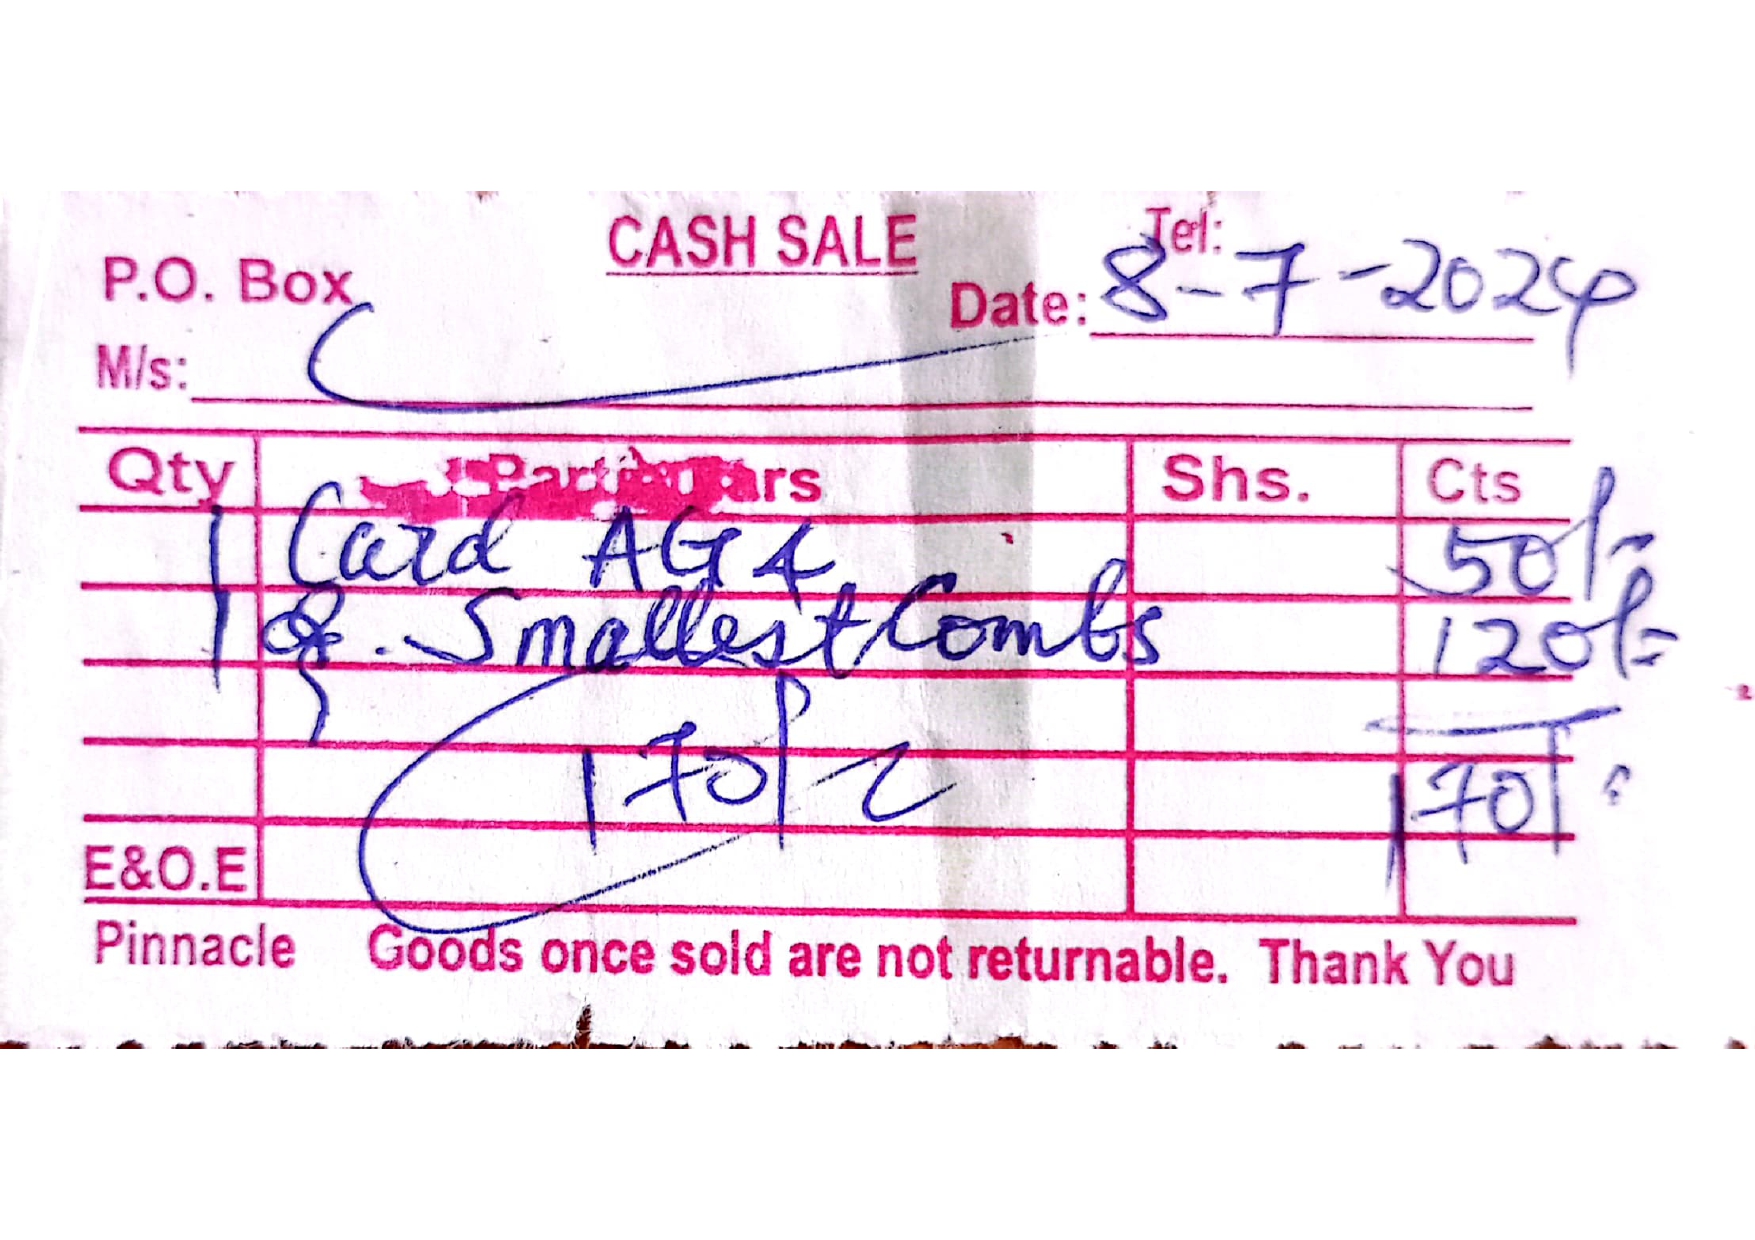 CASH SALE
Tel:
P.O. Box
Date: 8-7-2024
M/s:
Qty Particulars Shs. Cts
1 Card AG4 50/=
1 Smallest Combs 120/=
170/=
170/=
E&O.E
Pinnacle Goods once sold are not returnable. Thank You